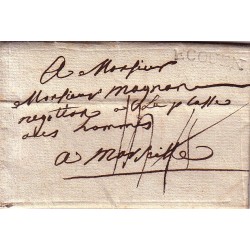 A Monsieur
Monsieur magnan
negottian a la place
aus hommes
a Marseille